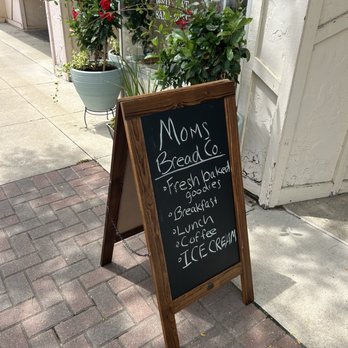 Moms
Bread Co.
Fresh baked
goodies
Breakfast
Lunch
Coffee
ICE CREAM